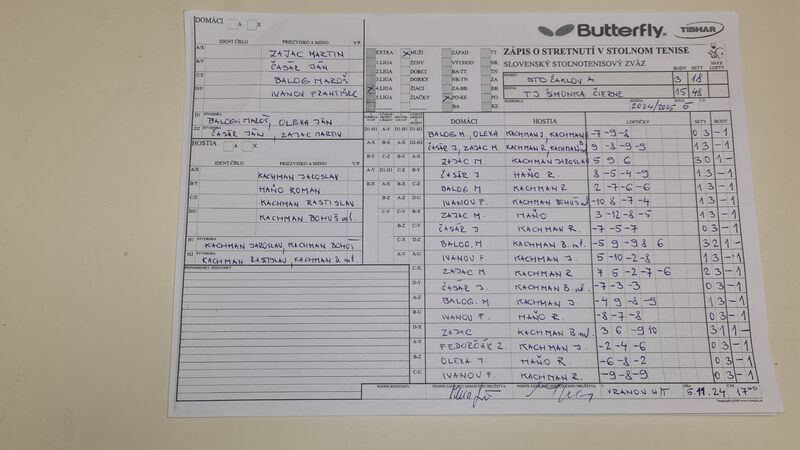 DOMÁCI A X
IDENT.ČÍSLO PRIEZVISKO A MENO V/P
A/X ZAJAC MARTIN
B/Y ČASÁR JÁN
C/Z BALOG MAROŠ
D/U IVANOV FRANTIŠEK
D1 ŠTVORHRA BALOG MAROŠ, OLEXA JÁN
D2 ŠTVORHRA ČASÁR JÁN, ZAJAC MARTIN
HOSTIA A X
IDENT.ČÍSLO PRIEZVISKO A MENO V/P
A/X KACHMAN JAROSLAV
B/Y HAŇO ROMAN
C/Z KACHMAN RASTISLAV
D/U KACHMAN BOHUŠ ml.
H1 ŠTVORHRA KACHMAN JAROSLAV, KACHMAN BOHUŠ
H2 ŠTVORHRA KACHMAN RASTISLAV, KACHMAN B. ml.
PRIPOMIENKY, POZNÁMKY
Butterfly TIBHAR
ZÁPIS O STRETNUTÍ V STOLNOM TENISE
SLOVENSKÝ STOLNOTENISOVÝ ZVÄZ
EXTRA MUŽI ZÁPAD TT
1.LIGA ŽENY VÝCHOD NR
2.LIGA DORCI BA-TT TN
3.LIGA DORKY NR-TN ZA
4.LIGA ŽIACI ZA-BB BB
5.LIGA ŽIAČKY PO-KE PO
BA KE
BODY SETY LOPTY
DOMÁCI STO ČAKLOV A 3 18
HOSTIA TJ SMONKA ČIERNE 15 48
ROZHODCA 2024/2025 5
DOMÁCI HOSTIA LOPTIČKY SETY BODY
BALOG M., OLEXA KACHMAN J., KACHMAN B -7 -9 -8 0 3 -1
ČASÁR J., ZAJAC M. KACHMAN R., KACHMAN B 9 -8 -9 -9 1 3 -1
ZAJAC M. KACHMAN JAROSLAV 5 9 6 3 0 1 -
ČASÁR J. HAŇO R. 8 -5 -4 -9 1 3 -1
BALOG M KACHMAN R 2 -7 -6 -6 1 3 -1
IVANOV F. KACHMAN BOHUŠ ml -10 8 -7 -4 1 3 -1
ZAJAC M. HAŇO 3 -12 -8 -5 1 3 -1
ČASÁR J. KACHMAN R. -7 -5 -7 0 3 -1
BALOG. M KACHMAN B. ml -5 9 -9 8 6 3 2 1 -1
IVANOV F. KACHMAN J. 5 -10 -2 -8 1 3 -1
ZAJAC M KACHMAN R 7 5 -2 -7 -6 2 3 -1
ČASÁR J. KACHMAN B. ml -7 -3 -3 0 3 -1
BALOG. M KACHMAN J. -4 9 -8 -9 1 3 -1
IVANOV F. HAŇO R. -8 -7 -8 0 3 -1
ZAJAC KACHMAN B. ml 3 6 -9 10 3 1 1 -
FEDORČÁK Z. KACHMAN J. -2 -4 -6 0 3 -1
OLEXA J. HAŇO R. -6 -8 -2 0 3 -1
IVANOV F. KACHMAN R. -9 -8 -9 0 3 -1
PODPIS ROZHODCU PODPIS ZÁSTUPCU DOMÁCEHO DRUŽSTVA VRANOV N/T DŇA 5.11.24 ČAS 17⁰⁰